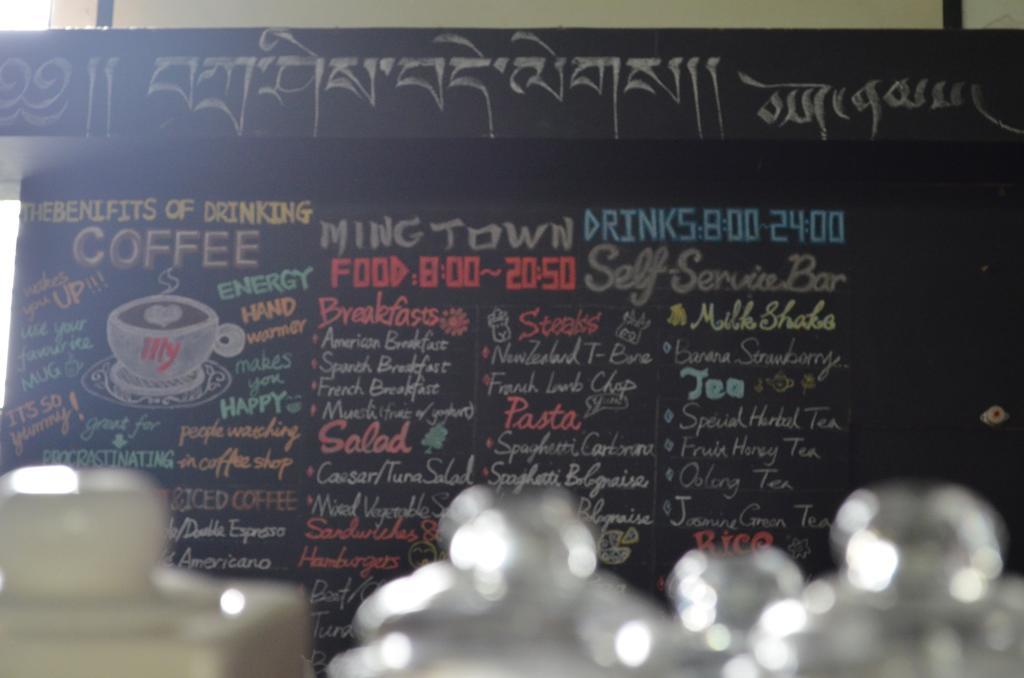 ༄༅།། བཀྲ་ཤིས་བདེ་ལེགས།།།
THE BENIFITS OF DRINKING
COFFEE
makes you UP!!!
use your favourite MUG
IT'S SO yummy!
great for
PROCRASTINATING
illy
ENERGY
HAND warmer
makes you HAPPY
people watching
in coffee shop
ICED COFFEE
Double Espresso
Americano
MING TOWN
FOOD:8:00~20:50
Breakfasts
American Breakfast
Spanish Breakfast
French Breakfast
Muesli (fruit w/ yoghurt)
Salad
Caesar/Tuna Salad
Mixed Vegetable
Sandwiches &
Hamburgers
Beef/
Tuna
Steaks
New Zealand T-Bone
French Lamb Chop
Pasta
Spaghetti Carbonara
Spaghetti Bolognaise
Bolognaise
DRINKS:8:00-24:00
Self-Service Bar
Milk Shake
Banana Strawberry..
Tea
Special Herbal Tea
Fruit Honey Tea
Oolong Tea
Jasmine Green Tea
Rice